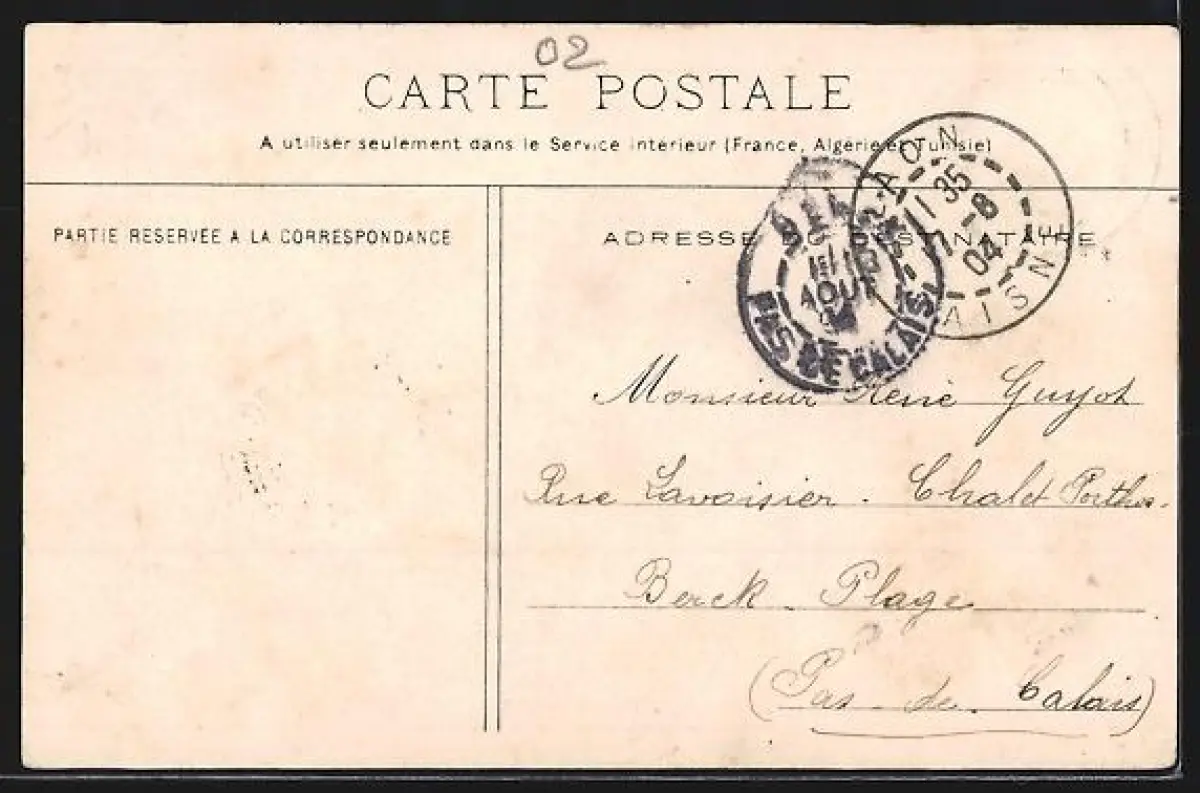 02
CARTE POSTALE
A utiliser seulement dans le Service intérieur (France, Algérie et Tunisie)
PARTIE RESERVÉE A LA CORRESPONDANCE
ADRESSE DU DESTINATAIRE
LAON
11 35
17-8
04
AISNE
AOUT
PAS DE CALAIS
Monsieur René Guyot
Rue Lavoisier. Chalet Porthos.
Berck. Plage
(Pas-de-Calais)